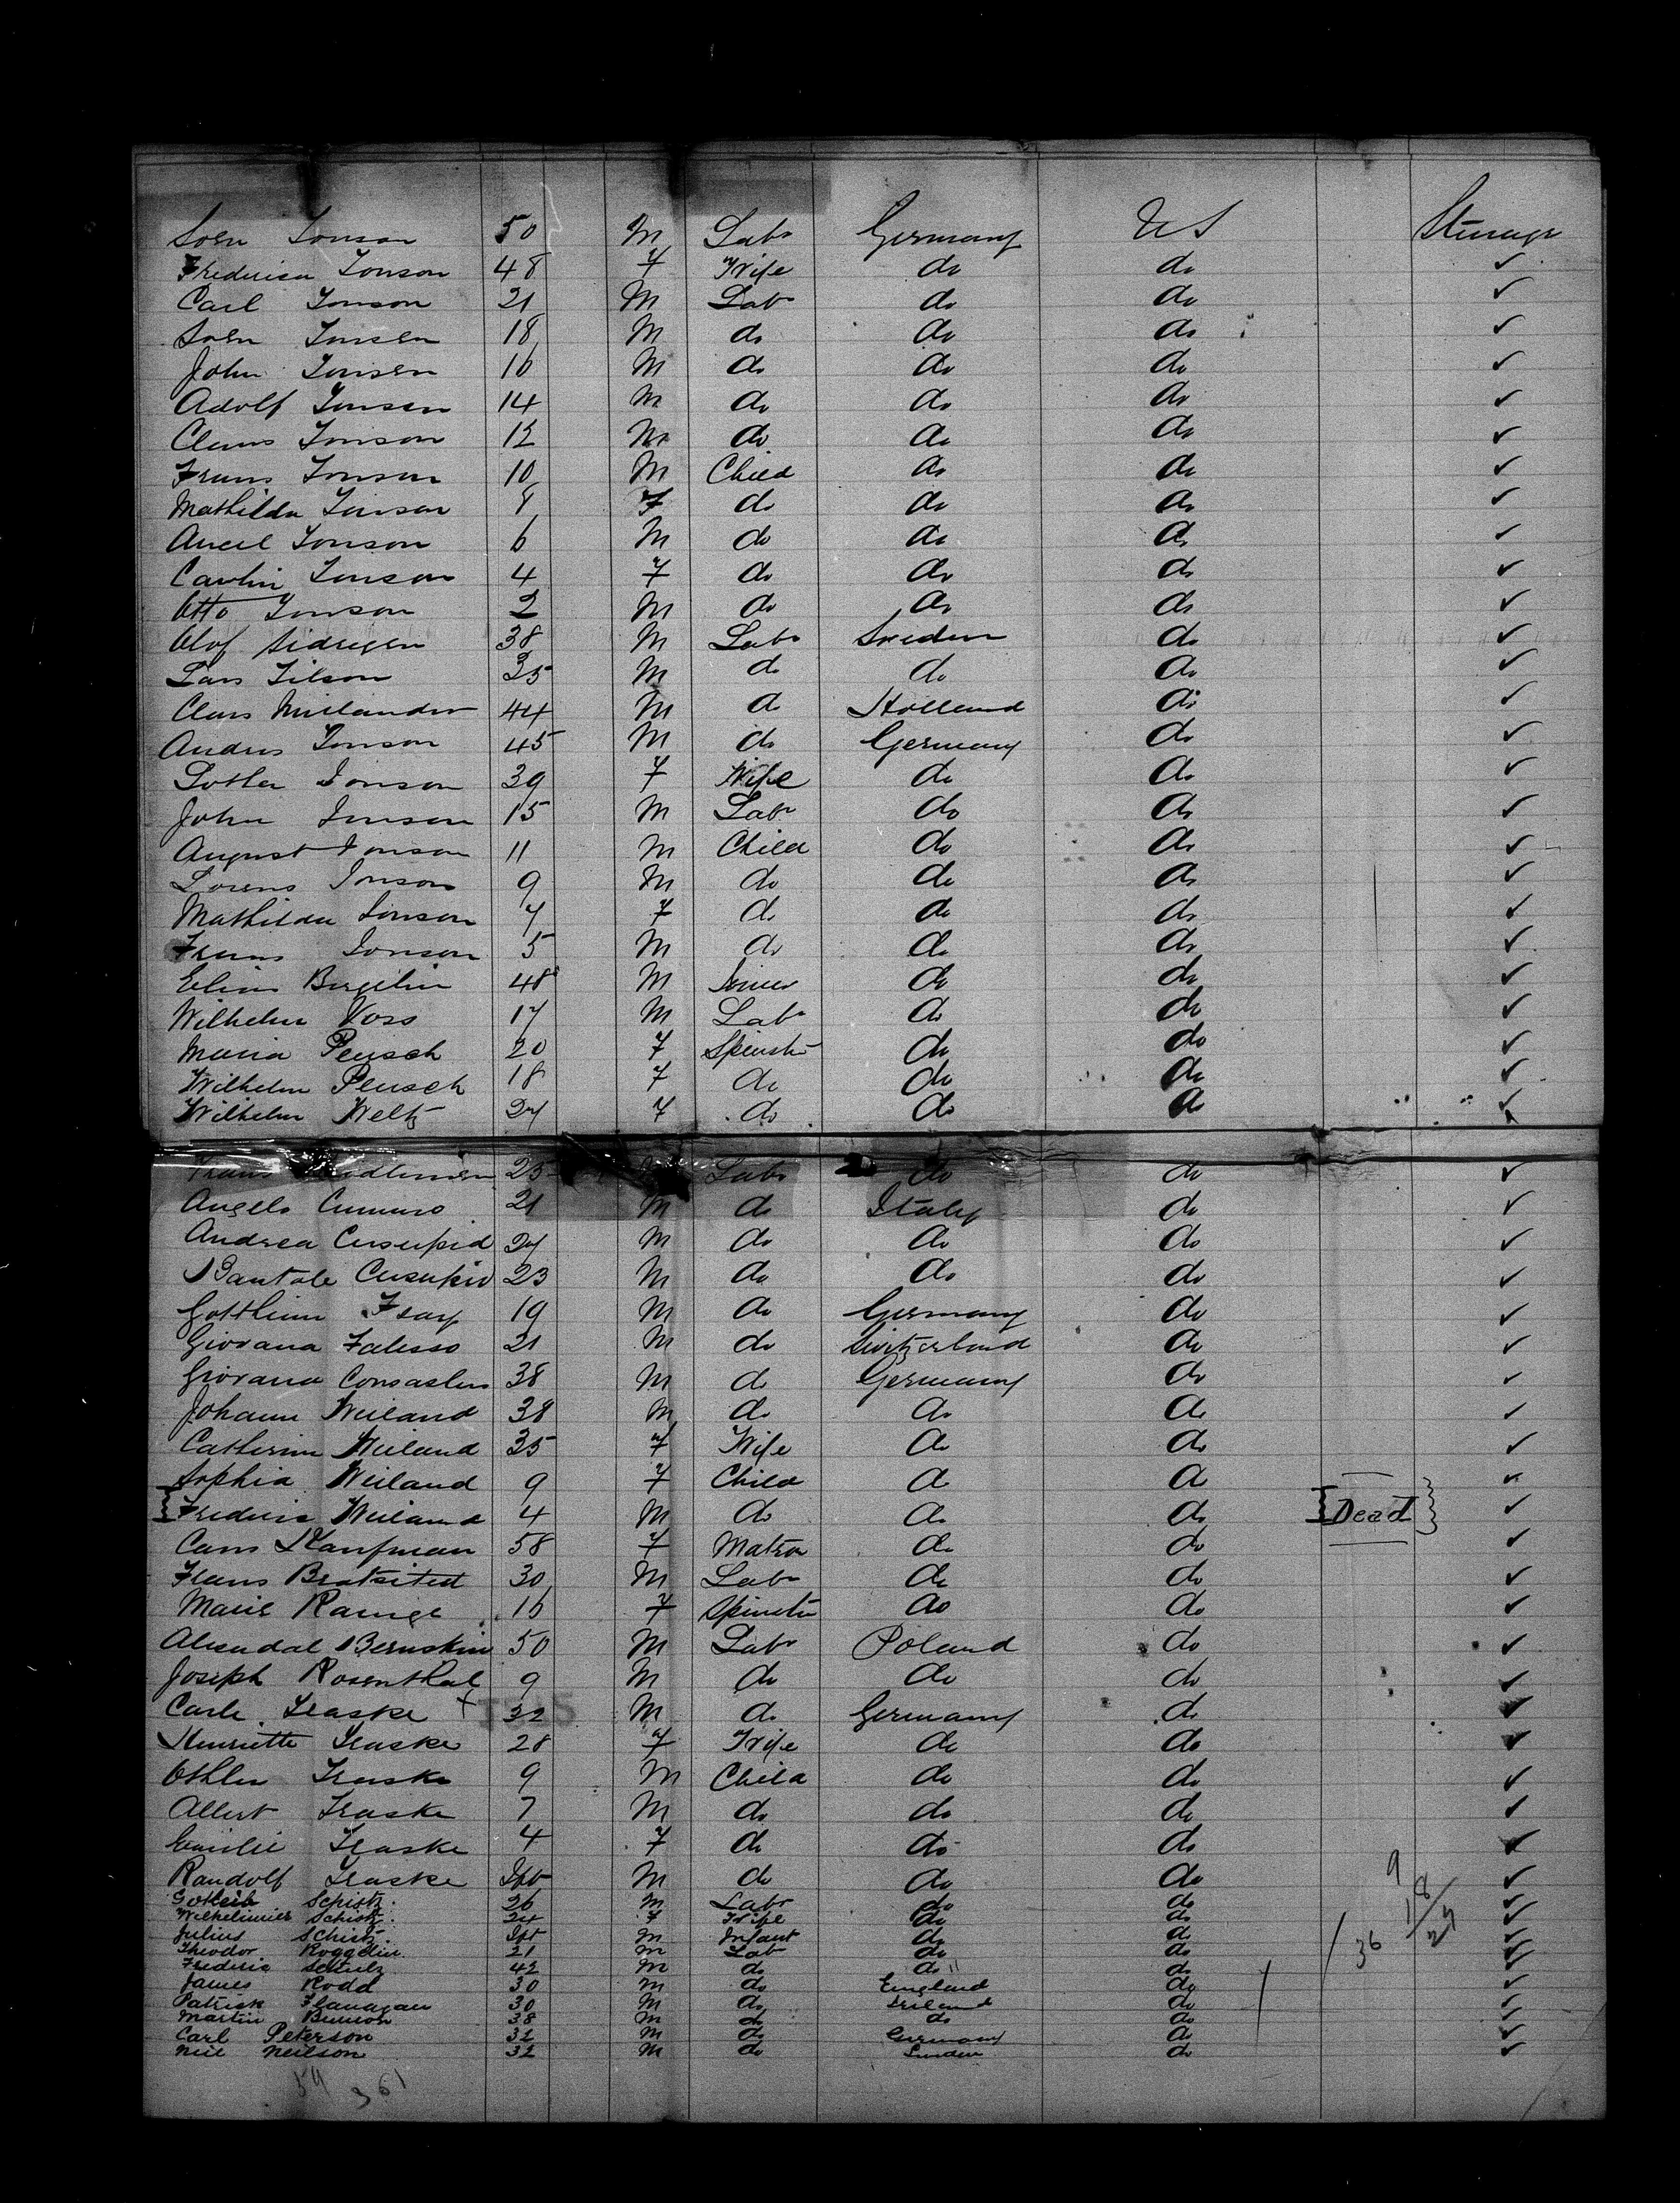 Sven Jonson 50 M Labr Germany US Steerage
Frederica Jonson 48 F Wife do do ✓
Carl Jonson 21 M Labr do do ✓
Sven Jonson 18 M do do do ✓
John Jonson 16 M do do do ✓
Adolf Jonson 14 M do do do ✓
Claus Jonson 12 M do do do ✓
Frans Jonson 10 M Child do do ✓
Mathilda Jonson 8 F do do do ✓
Jonson 6 M do do do ✓
Jonson 4 F do do do ✓
Otto Jonson 2 M do do do ✓
Olof 38 M Labr Sweden do ✓
Lars Tilson 35 M do do do ✓
Clars 44 M do Holland do ✓
Andrus Jonson 45 M do Germany do ✓
Jonson 39 F Wife do do ✓
John Jonson 15 M Labr do do ✓
August Jonson 11 M Child do do ✓
Lorens Jonson 9 M do do do ✓
Mathilda Jonson 7 F do do do ✓
Frans Jonson 5 M do do do ✓
Elias 48 M do do ✓
Wilhelm Voss 17 M Labr do do ✓
Maria Peusch 20 F Spinster do do ✓
Wilhelm Peusch 18 F do do do ✓
Wilhelm Weltz 27 F do do do ✓
Frans 25 M Labr do do ✓
Angelo 21 M do Italy do ✓
Andrea 27 M do do do ✓
23 M do do do ✓
19 M do Germany do ✓
Giovana Falesso 21 M do Switzerland do ✓
Giovana 38 M do Germany do ✓
Johann Weiland 38 M do do do ✓
Catherine Weiland 35 F Wife do do ✓
Sophia Weiland 9 F Child do do ✓
Frederic Weiland 4 M do do do Dead ✓
Kaufman 58 F Matron do do ✓
Frans 30 M Labr do do ✓
Marie 16 F Spinster do do ✓
50 M Labr Poland do ✓
Joseph Rosenthal 9 M do do do ✓
Carle Traske 32 M do Germany do ✓
Henriette Traske 28 F Wife do do ✓
Traske 9 M Child do do ✓
Albert Traske 7 M do do do ✓
Emilie Traske 4 F do do do ✓
Randolf Traske Inft M do do do ✓
Gotleib Schistz 26 M Labr do do ✓
Schistz 24 F Wife do do ✓
Julius Schistz Inft M Infant do do ✓
Theodor Roggelin 21 M Lab do do ✓
Frederic Schulz 42 M do do do ✓
James Rodd 30 M do England do ✓
Patrick Flanagan 30 M do Ireland do ✓
Martin 38 M do do do ✓
Carl Peterson 32 M do Germany do ✓
Neil Neilson 32 M do Sweden do ✓
9
18
27
36
361